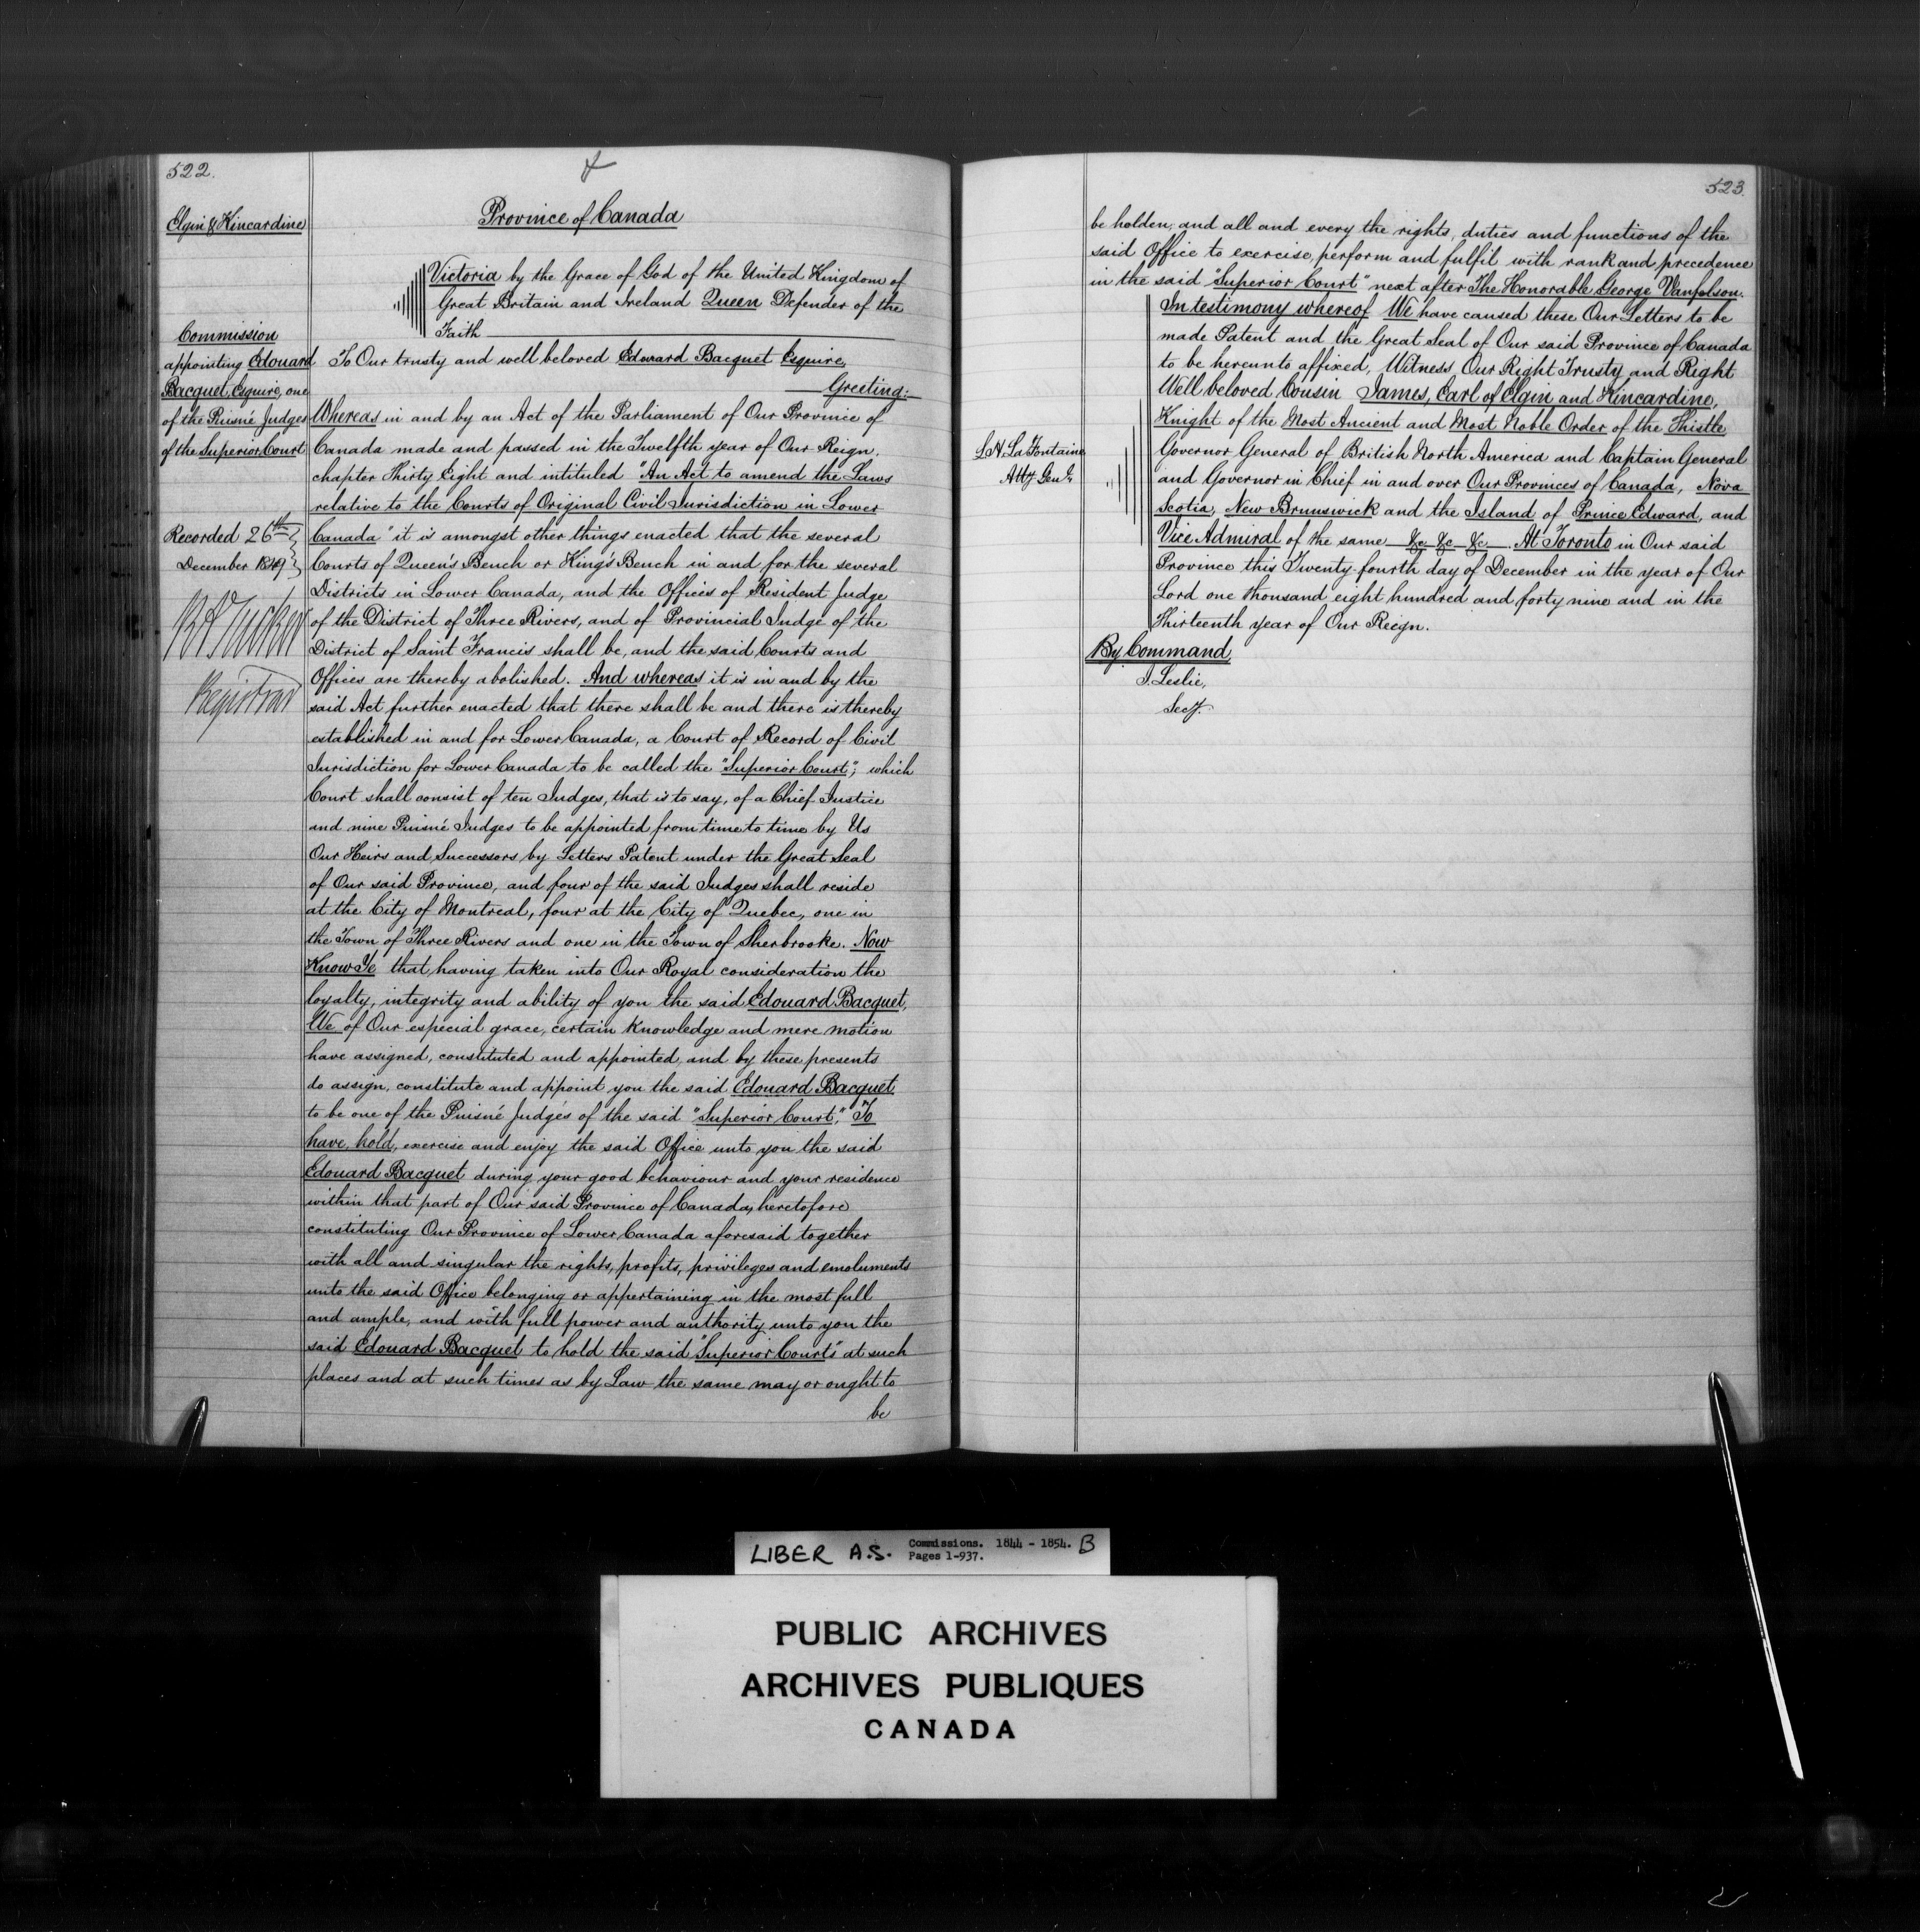 522.
Elgin & Kincardine
Province of Canada
Victoria by the Grace of God of the United Kingdom of
Great Britain and Ireland Queen Defender of the
Faith
Commission
appointing Edouard
Bacquet, Esquire, one
of the Puisné Judges
of the Superior Court
Recorded 26th
December 1849
Registrar
To Our trusty and well beloved Edouard Bacquet Esquire,
Greeting:
Whereas in and by an Act of the Parliament of Our Province of
Canada made and passed in the Twelfth year of Our Reign,
chapter Thirty Eight and intituled "An Act to amend the Laws
relative to the Courts of Original Civil Jurisdiction in Lower
Canada" it is amongst other things enacted that the several
Courts of Queen's Bench or King's Bench in and for the several
Districts in Lower Canada, and the Offices of Resident Judge
of the District of Three Rivers, and of Provincial Judge of the
District of Saint Francis shall be, and the said Courts and
Offices are thereby abolished. And whereas it is in and by the
said Act further enacted that there shall be and there is thereby
established in and for Lower Canada, a Court of Record of Civil
Jurisdiction for Lower Canada to be called the "Superior Court"; which
Court shall consist of ten Judges, that is to say, of a Chief Justice
and nine Puisné Judges to be appointed from time to time by Us
Our Heirs and Successors by Letters Patent under the Great Seal
of Our said Province, and four of the said Judges shall reside
at the City of Montreal, four at the City of Quebec, one in
the Town of Three Rivers and one in the Town of Sherbrooke. Now
Know Ye that having taken into Our Royal consideration the
loyalty, integrity and ability of you the said Edouard Bacquet,
We of Our especial grace, certain knowledge and mere motion
have assigned, constituted and appointed, and by these presents
do assign, constitute and appoint you the said Edouard Bacquet
to be one of the Puisné Judges of the said "Superior Court," To
have, hold, exercise and enjoy the said Office unto you the said
Edouard Bacquet during your good behaviour and your residence
within that part of Our said Province of Canada, heretofore
constituting Our Province of Lower Canada aforesaid together
with all and singular the rights, profits, privileges and emoluments
unto the said Office belonging or appertaining in the most full
and ample, and with full power and authority unto you the
said Edouard Bacquet to hold the said "Superior Courts" at such
places and at such times as by Law the same may or ought to
be
523.
be holden, and all and every the rights, duties and functions of the
said Office to exercise, perform and fulfil with rank and precedence
in the said "Superior Court" next after The Honorable George Vanfelson.
In testimony whereof We have caused these Our Letters to be
made Patent and the Great Seal of Our said Province of Canada
to be hereunto affixed, Witness, Our Right Trusty and Right
Well beloved Cousin James, Earl of Elgin and Kincardine,
Knight of the Most Ancient and Most Noble Order of the Thistle
Governor General of British North America and Captain General
and Governor in Chief in and over Our Provinces of Canada, Nova
Scotia, New Brunswick and the Island of Prince Edward, and
Vice Admiral of the same &c. &c. &c. At Toronto in Our said
Province this Twenty fourth day of December in the year of Our
Lord one thousand eight hundred and forty nine and in the
Thirteenth year of Our Reign.
L. H. La Fontaine
Atty. Genl.
By Command,
J. Leslie,
Secy.
LIBER A.S. Commissions. 1844 - 1854. B
Pages 1-937.
PUBLIC ARCHIVES
ARCHIVES PUBLIQUES
CANADA